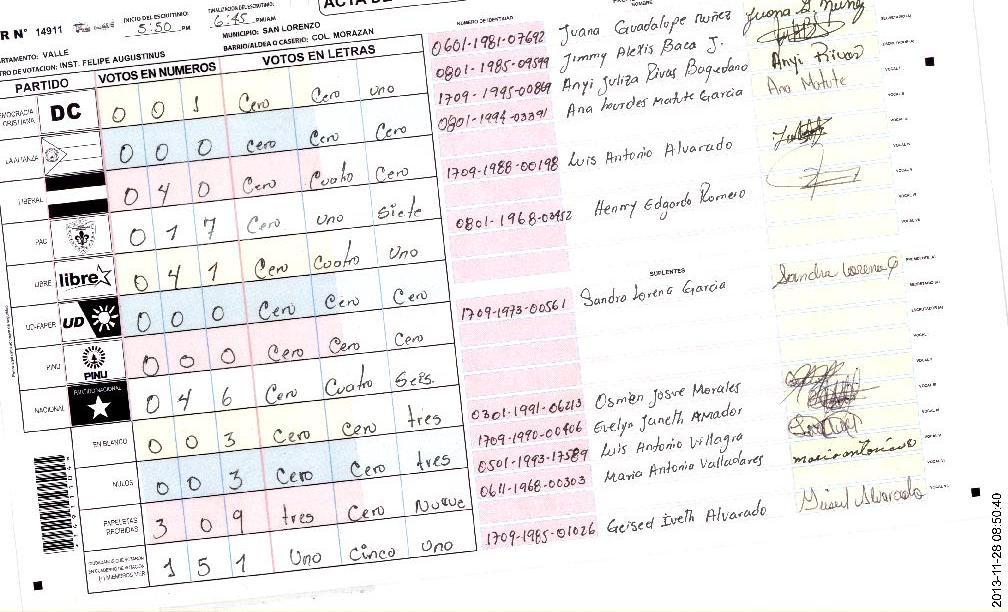 ACTA DE
R N° 14911 INICIO DEL ESCRUTINIO: 5:50 P.M FINALIZACION DEL ESCRUTINIO: 6:45 PM/AM
DEPARTAMENTO: VALLE MUNICIPIO: SAN LORENZO
INST. FELIPE AUGUSTINUS BARRIO/ALDEA O CASERIO: COL. MORAZAN
PARTIDO VOTOS EN NUMEROS VOTOS EN LETRAS
DEMOCRACIA CRISTIANA DC 0 0 1 Cero Cero uno
LA ALIANZA 0 0 0 Cero Cero Cero
LIBERAL 0 4 0 Cero Cuatro Cero
PAC 0 1 7 Cero uno Siete
LIBRE libre 0 4 1 Cero Cuatro Uno
UD-FAPER UD 0 0 0 Cero Cero Cero
PINU PINU 0 0 0 Cero Cero Cero
NACIONAL PARTIDO NACIONAL 0 4 6 Cero Cuatro Seis.
EN BLANCO 0 0 3 Cero Cero tres
NULOS 0 0 3 Cero Cero tres
PAPELETAS RECIBIDAS 3 0 9 tres Cero Nueve
1 5 1 Uno Cinco Uno
NUMERO DE IDENTIDAD NOMBRE
0601-1981-07692 Juana Guadalupe Nuñez Juana G. Nuñez
0801-1985-09599 Jimmy Alexis Baca J.
1709-1995-00869 Anyi Juliza Rivas Bogedano Anyi Rivas
0801-1994-03391 Ana Lourdes Matute Garcia Ana Matute
1709-1988-00198 Luis Antonio Alvarado
0801-1968-03452 Henry Edgardo Romero
SUPLENTES
1709-1973-00561 Sandra Lorena Garcia Sandra Lorena G
0301-1991-06213 Osmen Josue Morales
1709-1990-00406 Evelyn Janeth Amador
0501-1993-17589 Luis Antonio Villagra
0611-1968-00303 Maria Antonia Valladares
1709-1985-01026 Geised Iveth Alvarado
2013-11-28 08:50:40